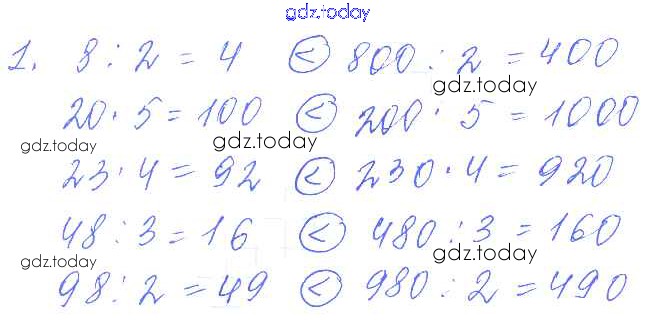 gdz.today
1. 8 : 2 = 4 < 800 : 2 = 400
gdz.today
20 · 5 = 100 < 200 · 5 = 1000
gdz.today gdz.today
23 · 4 = 92 < 230 · 4 = 920
48 : 3 = 16 < 480 : 3 = 160
gdz.today gdz.today
98 : 2 = 49 < 980 : 2 = 490